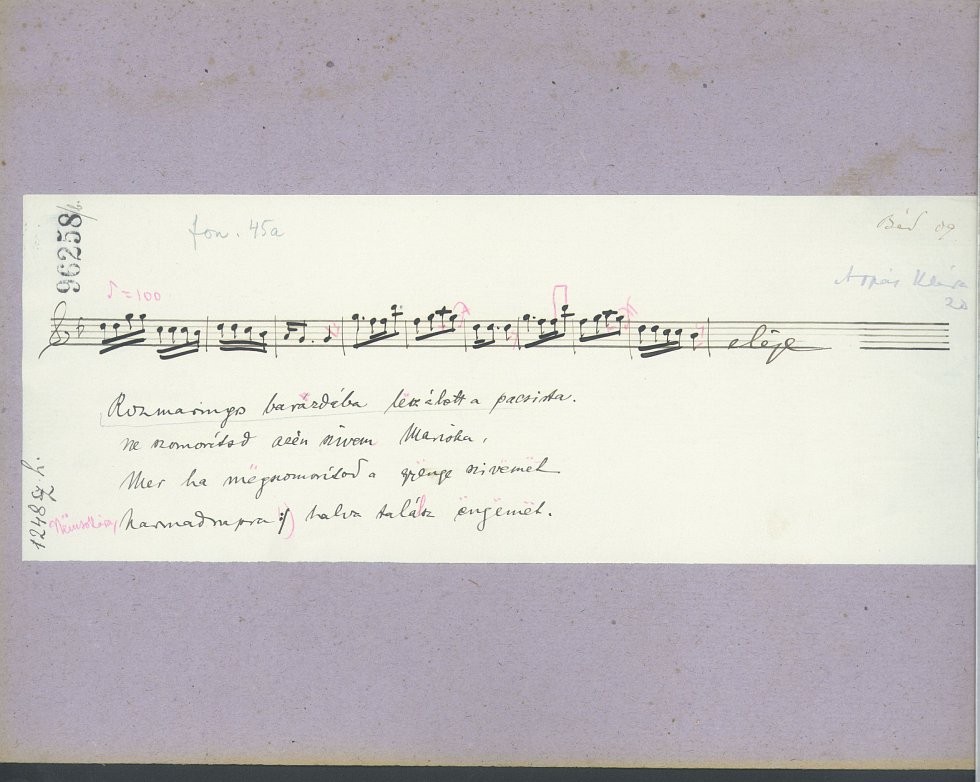 96258/b.
fon. 45a
Béd 09.
♪ = 100
20
eleje
Rozmaringos barázdába leszálott a pacsirta.
ne szomorítsd az én szivem Mariska,
Mer ha mëgszomorítod a gyënge szivemët
harmadnapra :/ halva talász ëngëmët.
12482 h.